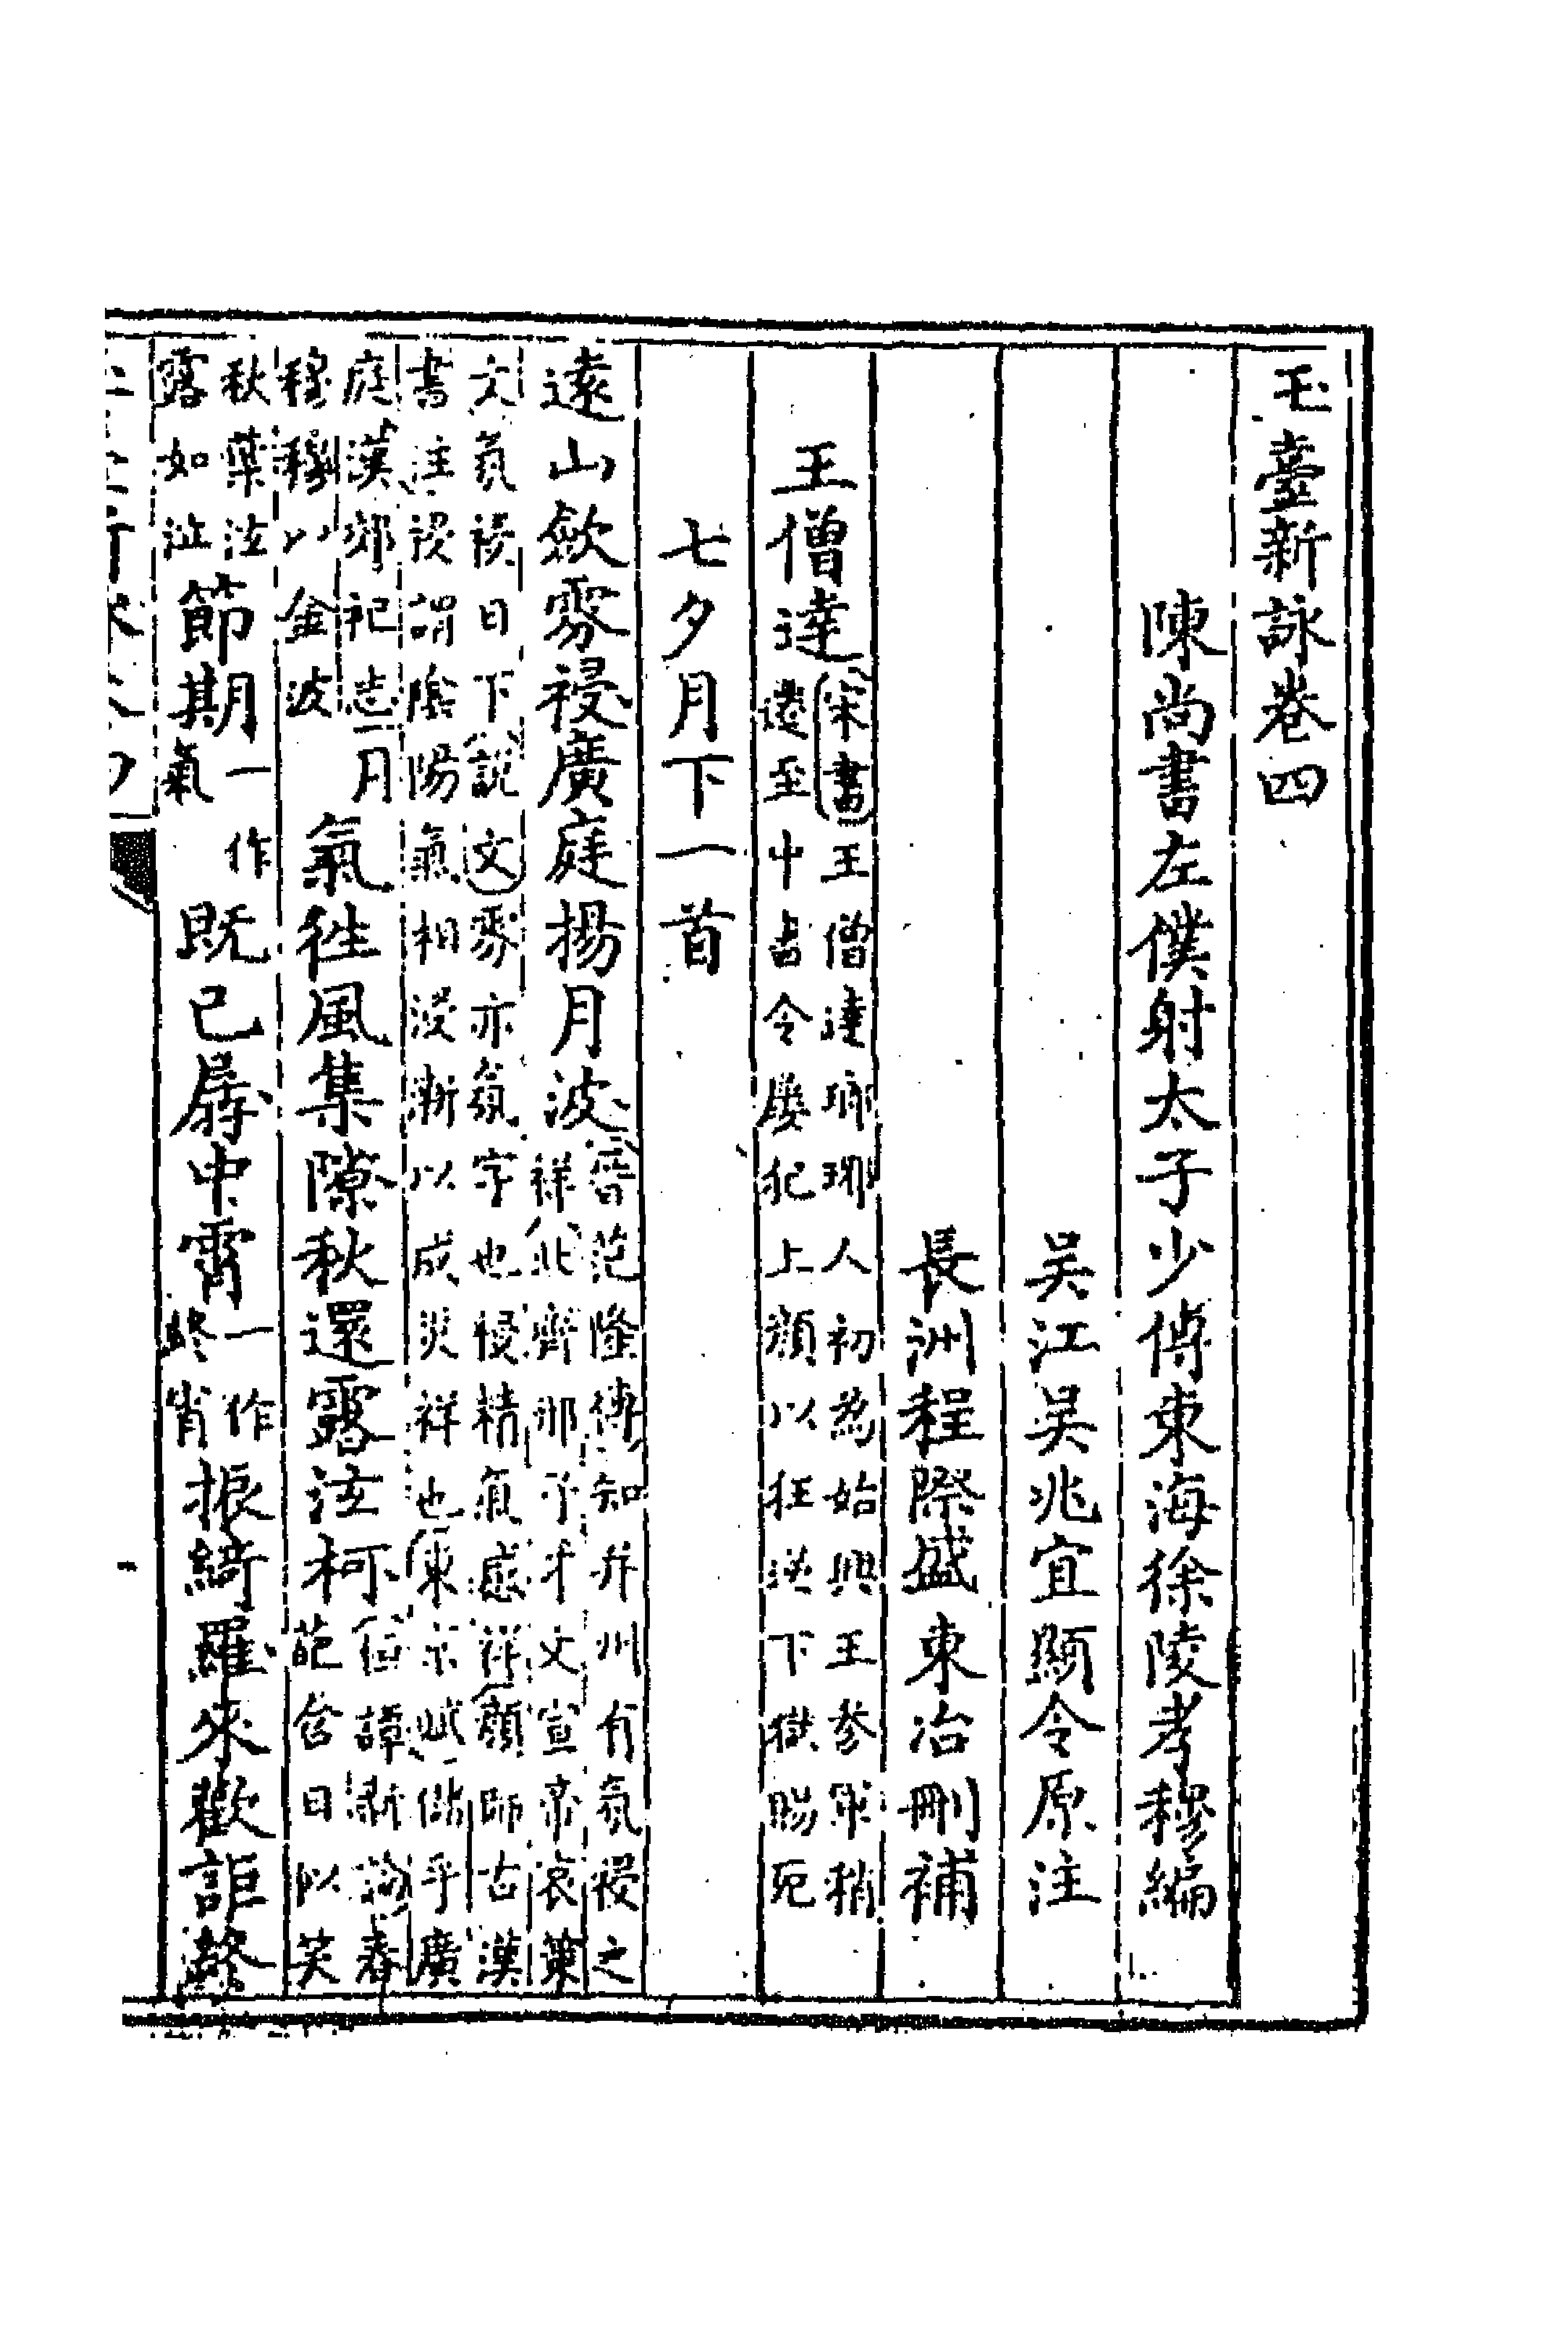 玉臺新詠卷四
陳尚書左僕射太子少傅東海徐陵孝穆編
吴江吴兆宜顯令原注
長洲程際盛東冶刪補
王僧達宋書王僧達瑯琊人初為始興王參軍稍
遷至中書令屡犯上顔以狂逆下獄賜死
七夕月下一首
遠山斂雰祲廣庭揚月波晉范隆傳知并州有氛祲之
祥北齊邢子才文宣帝哀策
文氛祲日下說文雰亦氛字也祲精氣感祥顔師古漢
書注祲謂隂陽氣相浸漸以成災祥也東京賦儲乎廣
庭漢郊祀志月
穆穆以金波
氣徃風集隙秋還露泫柯桓譚新論春
葩含日似笑
秋葉泫
露如泣
節期一作
氣
既已孱中霄一作
終宵
振綺羅來歡詎終